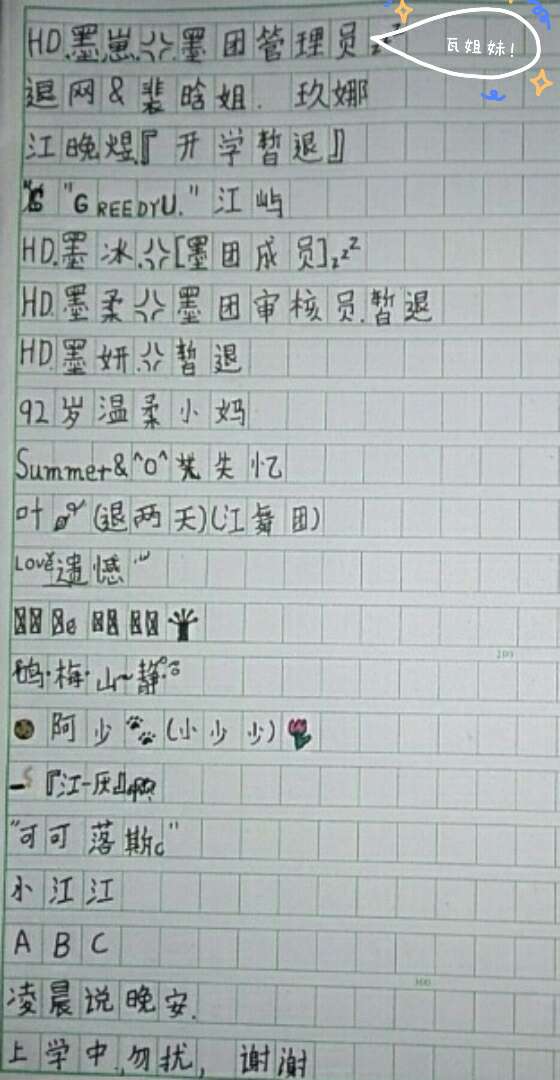 HD.墨崽.ツ.墨团管理员 zzZ
瓦姐妹!
退网&裴晗姐. 玖娜
江晚煜『开学暂退』
"GREEDYU." 江屿
HD.墨冰.ツ[墨团成员]zzZ
HD.墨柔ツ墨团审核员.暂退
HD.墨妍.ツ暂退
92岁温柔小妈
Summer&^O^ 失忆
叶 (退两天)(江舞团)
LOVE遗憾
梅·山~静
阿少 (小少少)
『江-厌』
"可可落斯c"
小江江
ABC
凌晨说晚安.
上学中,勿扰,谢谢
200
300